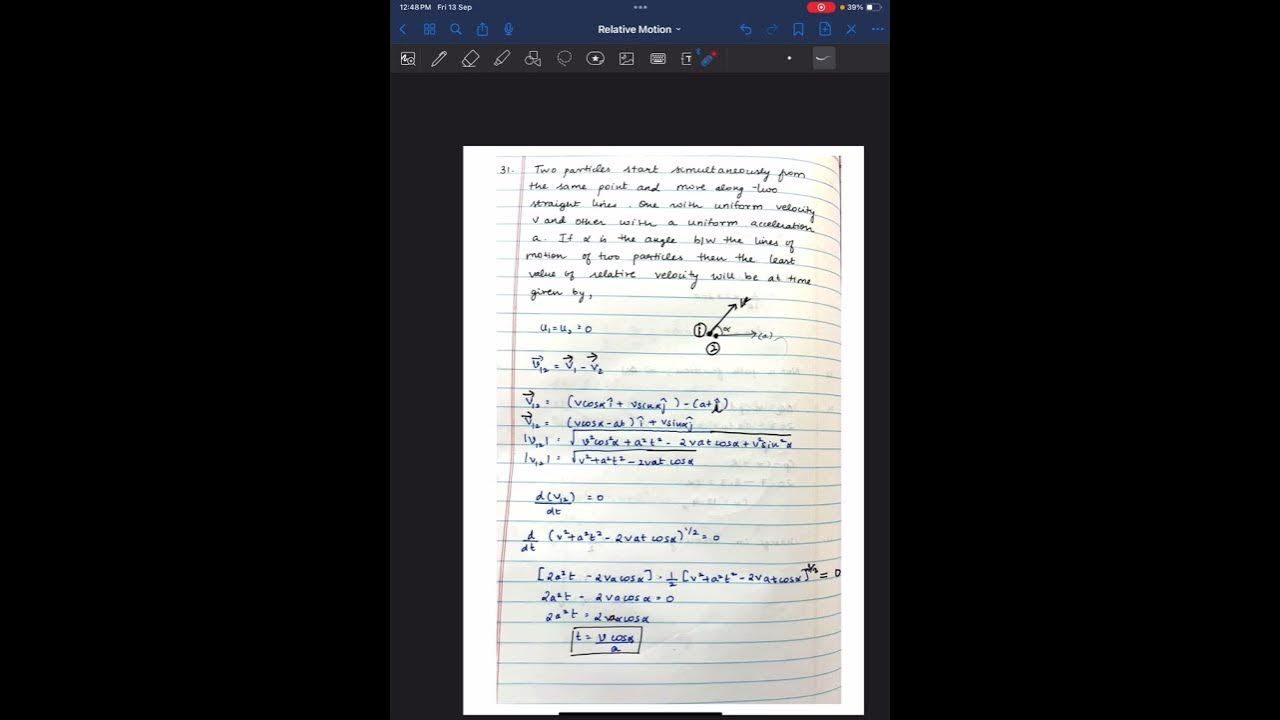 12:48 PM Fri 13 Sep
39%
Relative Motion
31. Two particles start simultaneously from
the same point and move along two
straight lines. One with uniform velocity
v and other with a uniform acceleration
a. If α is the angle b/w the lines of
motion of two particles then the least
value of relative velocity will be at time
given by,
v
α
① (a)
②
u₁ = u₂ = 0
v⃗₁₂ = v⃗₁ - v⃗₂
v⃗₁₂ = (vcosα î + vsinα ĵ) - (at î)
v⃗₁₂ = (vcosα - at) î + vsinα ĵ
|v₁₂| = √v²cos²α + a²t² - 2vat cosα + v²sin²α
|v₁₂| = √v² + a²t² - 2vat cosα
d(v₁₂)/dt = 0
d/dt (v² + a²t² - 2vat cosα)^1/2 = 0
[2a²t - 2va cosα] · 1/2 [v² + a²t² - 2vat cosα]^1/2 = 0
2a²t - 2va cosα = 0
2a²t = 2va cosα
t = v cosα/a